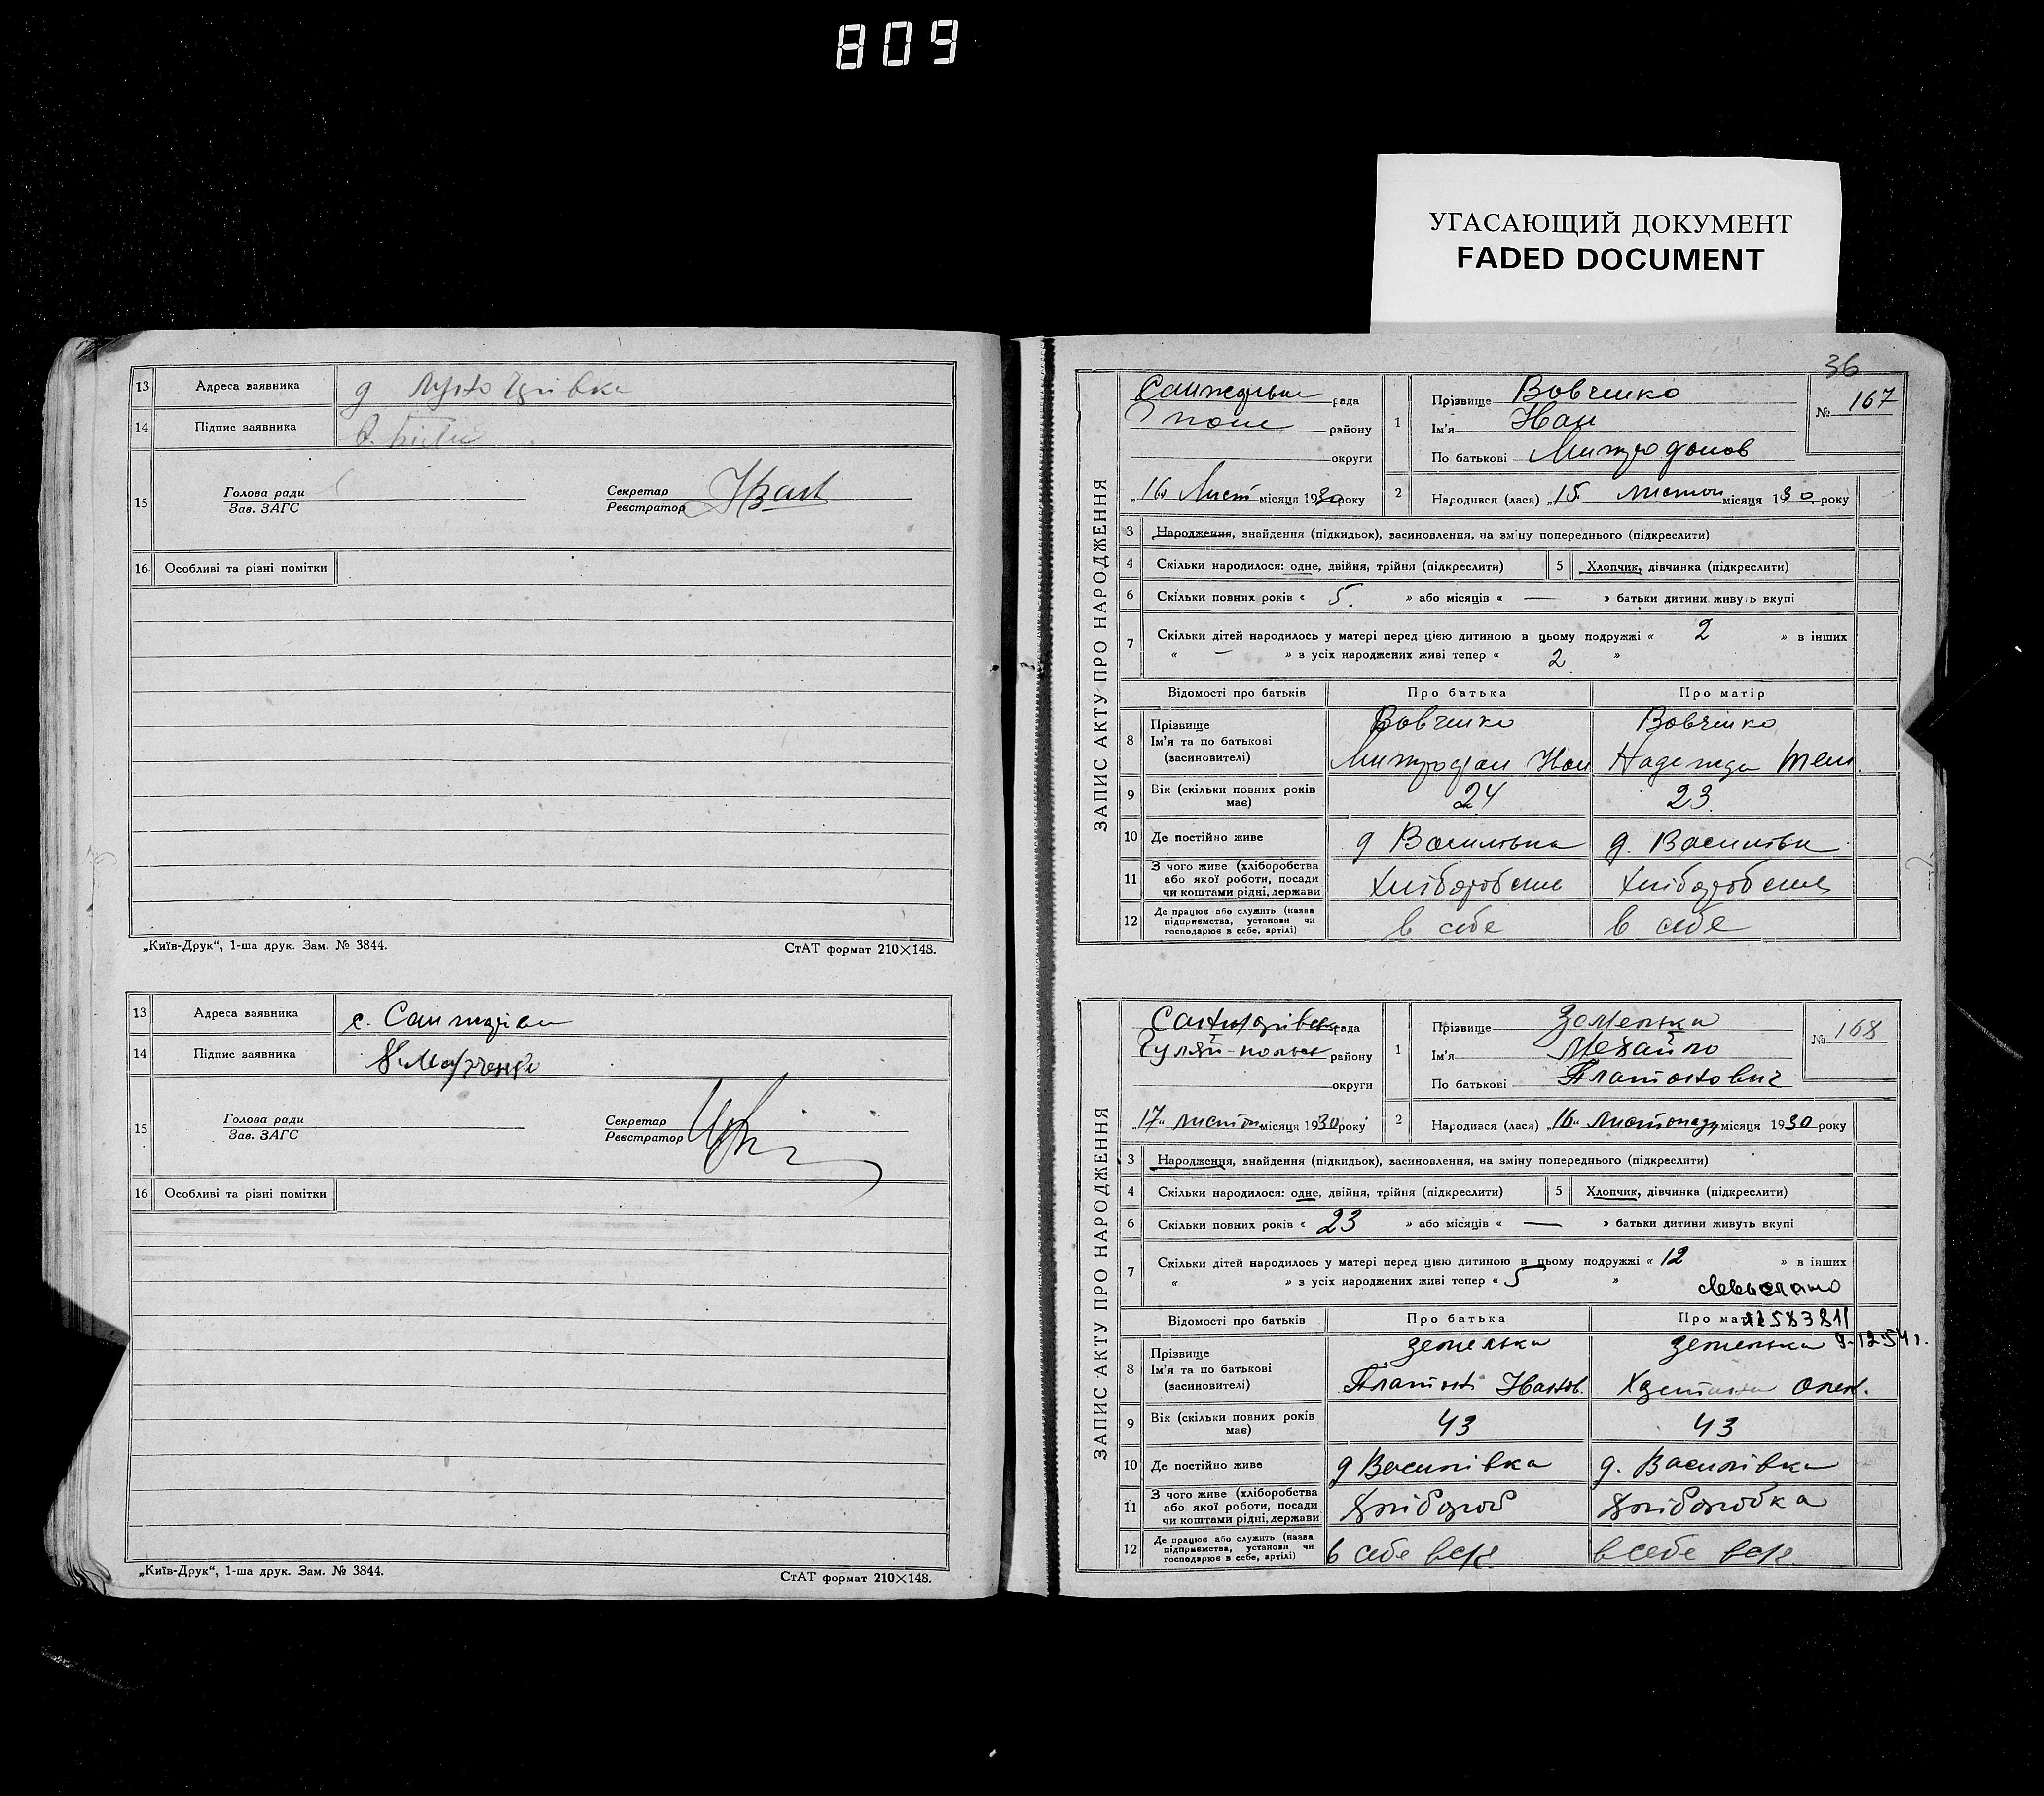 809
УГАСАЮЩИЙ ДОКУМЕНТ
FADED DOCUMENT
13 Адреса заявника д
14 Підпис заявника
15 Голова ради
Зав. ЗАГС
Секретар
Реєстратор
16 Особливі та різні помітки
„Київ-Друк“, 1-ша друк. Зам. № 3844.
СтАТ формат 210×148.
13 Адреса заявника с.
14 Підпис заявника
15 Голова ради
Зав. ЗАГС
Секретар
Реєстратор
16 Особливі та різні помітки
„Київ-Друк“, 1-ша друк. Зам. № 3844.
СтАТ формат 210×148.
36
ЗАПИС АКТУ ПРО НАРОДЖЕННЯ
рада
району
округи
„16 Лист місяця 1930 року
1 Прізвище Вовченко
Ім'я Иван
По батькові
№ 167
2 Народився (лася) „15 листоп місяця 1930 року
3 Народження, знайдення (підкидьок), засиновлення, на зміну попереднього (підкреслити)
4 Скільки народилося: одне, двійня, трійня (підкреслити)
5 Хлопчик, дівчинка (підкреслити)
6 Скільки повних років « 5. » або місяців « — » батьки дитини живуть вкупі
7 Скільки дітей народилось у матері перед цією дитиною в цьому подружжі « 2 » в інших
« – » з усіх народжених живі тепер « 2. »
Відомості про батьків Про батька Про матір
8 Прізвище Вовченко Вовченко
Ім'я та по батькові
(засиновителі) Надежда
9 Вік (скільки повних років має) 24 23
10 Де постійно живе д Василівка д. Василівка
11 З чого живе (хліборобства
або якої роботи, посади
чи коштами рідні, держави
12 Де працює або служить (назва
підприємства, установи чи
господарює в себе, артілі) в себе в себе
ЗАПИС АКТУ ПРО НАРОДЖЕННЯ
рада
Гуляй-польск району
округи
„17“ листоп місяця 1930 року
1 Прізвище Земелька
Ім'я Михайло
По батькові Платонович
№ 168
2 Народився (лася) „16“ листопаду місяця 1930 року
3 Народження, знайдення (підкидьок), засиновлення, на зміну попереднього (підкреслити)
4 Скільки народилося: одне, двійня, трійня (підкреслити)
5 Хлопчик, дівчинка (підкреслити)
6 Скільки повних років « 23 » або місяців « — » батьки дитини живуть вкупі
7 Скільки дітей народилось у матері перед цією дитиною в цьому подружжі « 12 » в інших
« » з усіх народжених живі тепер « 5 »
Відомості про батьків Про батька Про матір
9-12-54 г.
8 Прізвище Земелька Земелька
Ім'я та по батькові
(засиновителі) Платон
9 Вік (скільки повних років має) 43 43
10 Де постійно живе д Василівка д. Василівка
11 З чого живе (хліборобства
або якої роботи, посади
чи коштами рідні, держави хлібороб хліборобка
12 Де працює або служить (назва
підприємства, установи чи
господарює в себе, артілі) в себе в себе